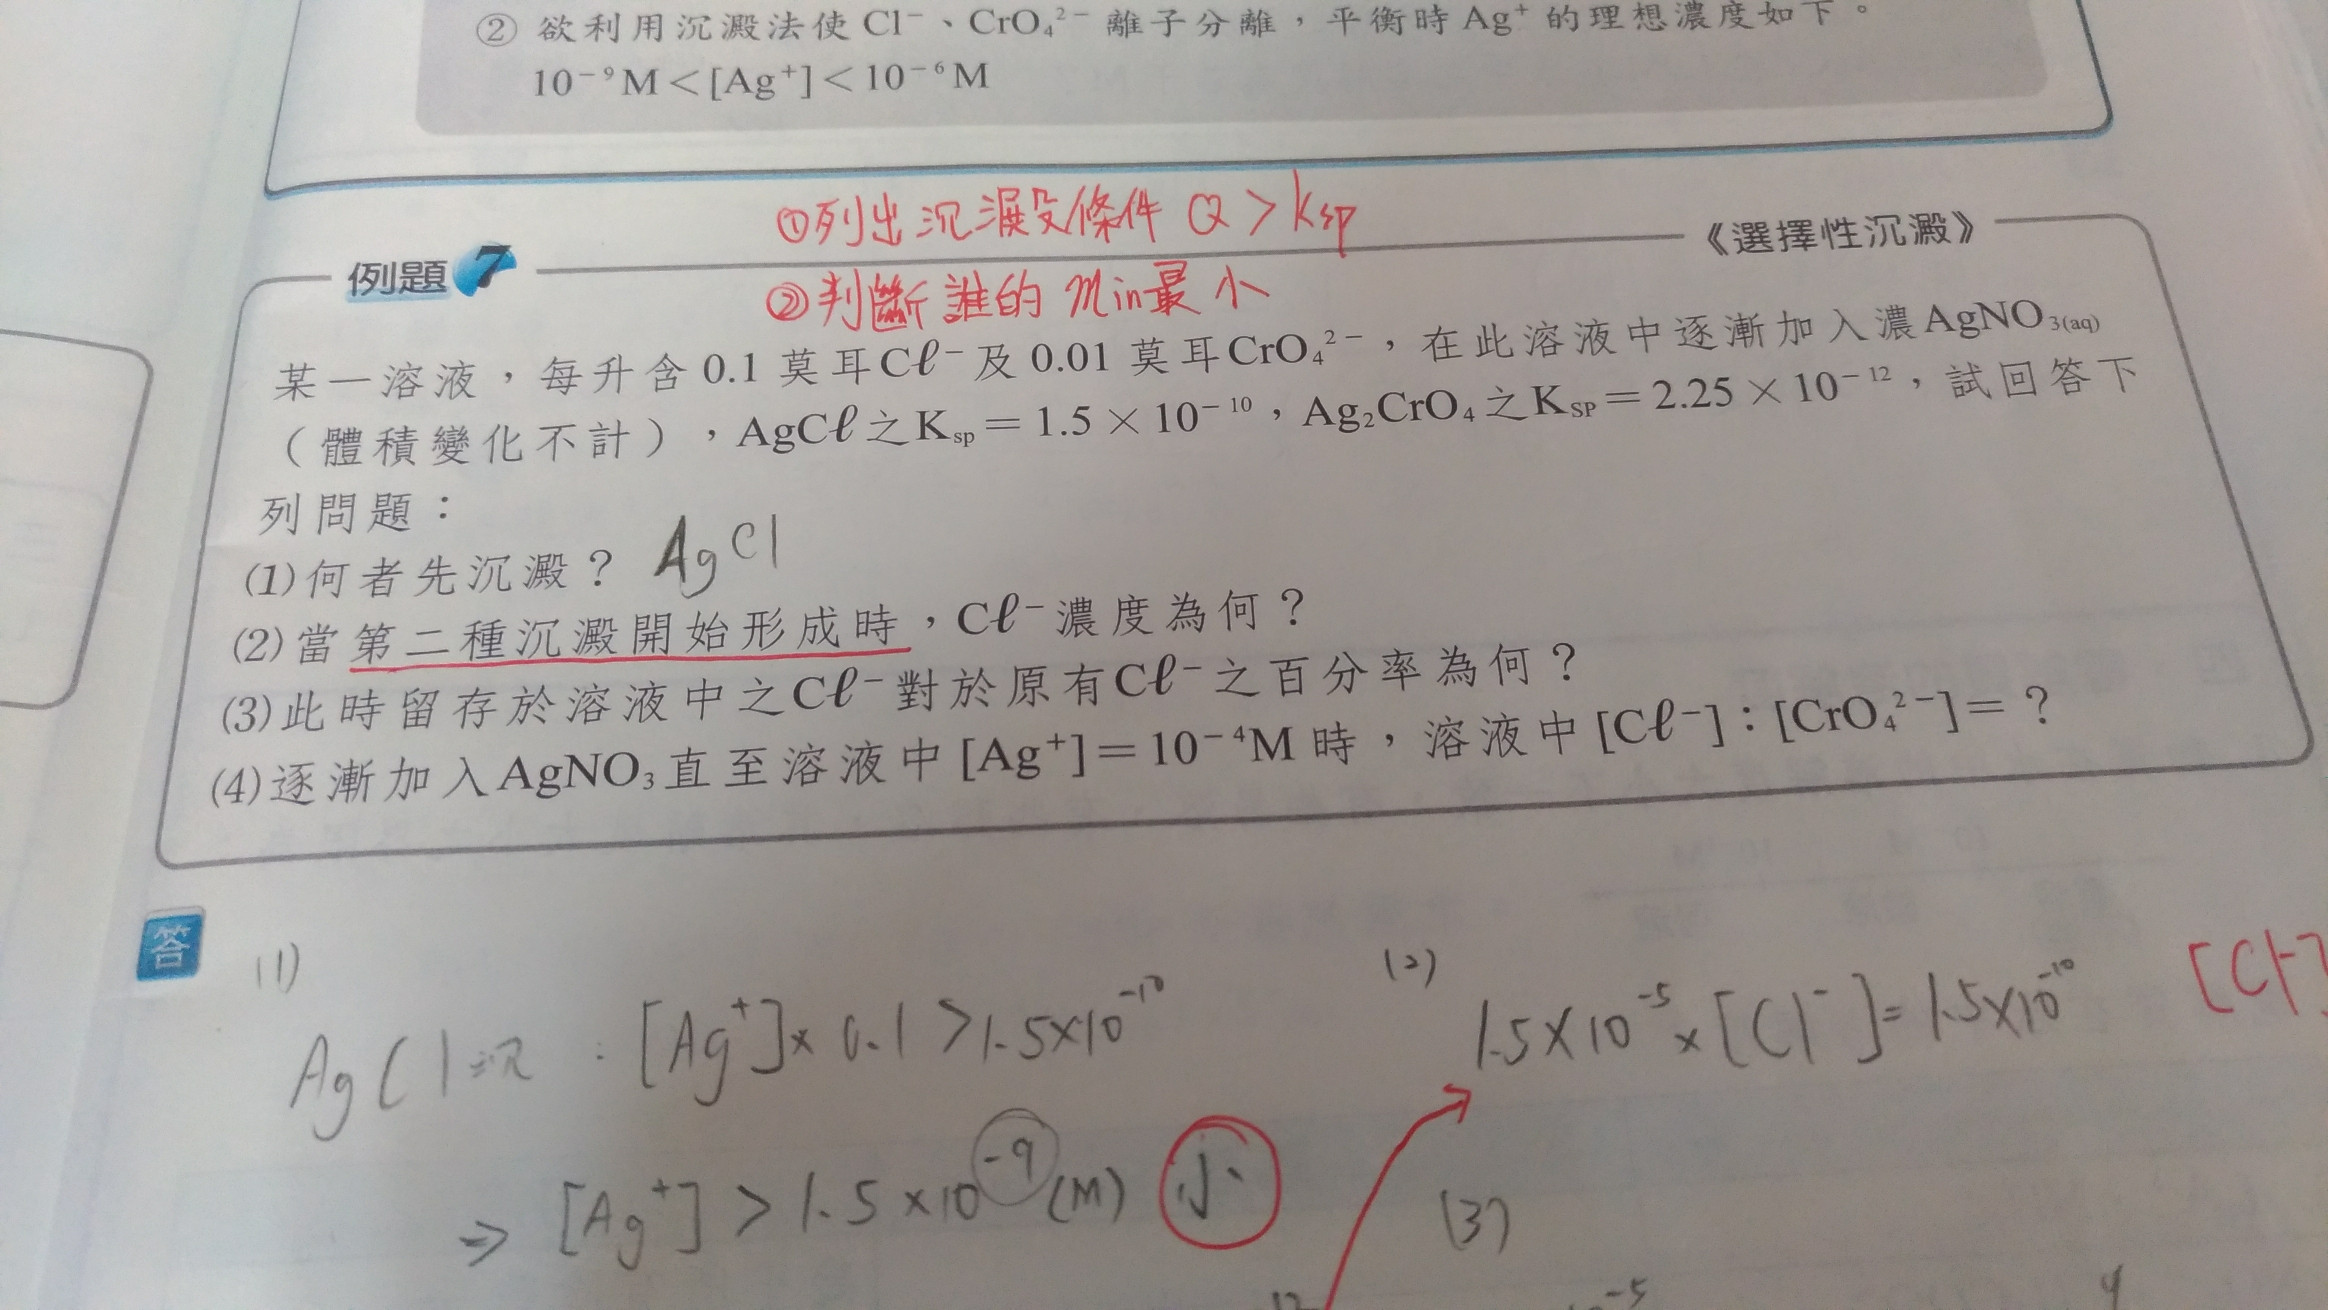 ② 欲利用沉澱法使Cl⁻、CrO₄²⁻離子分離，平衡時Ag⁺的理想濃度如下。
10⁻⁹M＜[Ag⁺]＜10⁻⁶M
①列出沉澱條件 Q > Ksp
《選擇性沉澱》
例題 7
②判斷誰的 min最小
某一溶液，每升含0.1莫耳Cℓ⁻及0.01莫耳CrO₄²⁻，在此溶液中逐漸加入濃AgNO₃₍aq₎
（體積變化不計），AgCℓ之Ksp＝1.5×10⁻¹⁰，Ag₂CrO₄之KSP＝2.25×10⁻¹²，試回答下
列問題：
(1)何者先沉澱？ AgCl
(2)當第二種沉澱開始形成時，Cℓ⁻濃度為何？
(3)此時留存於溶液中之Cℓ⁻對於原有Cℓ⁻之百分率為何？
(4)逐漸加入AgNO₃直至溶液中[Ag⁺]＝10⁻⁴M時，溶液中[Cℓ⁻]：[CrO₄²⁻]＝？
答
(1)
AgCl沉 : [Ag⁺]×0.1>1.5×10⁻¹⁰
⇒ [Ag⁺] > 1.5×10⁻⁹(M) 小
(2)
1.5×10⁻⁵×[Cl⁻]=1.5×10⁻¹⁰
[Cl⁻]
(3)